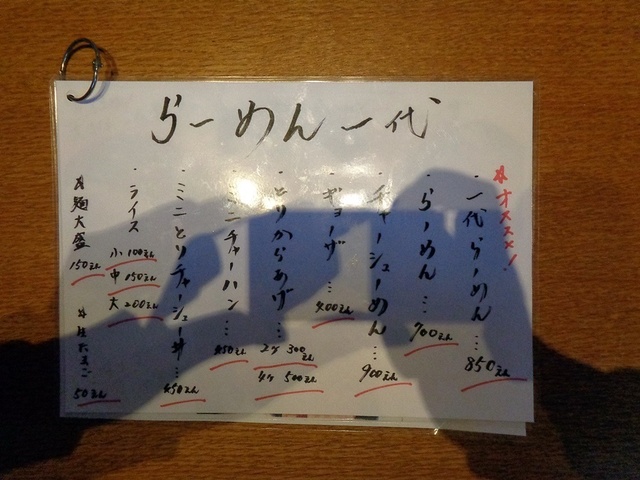 らーめん一代
※オススメ!
・一代らーめん… 850えん
・らーめん… 700えん
・チャーシューめん… 900えん
・ギョーザ… 400えん
・とりからあげ… 2ヶ 300えん
4ヶ 500えん
・ミニチャーハン… 450えん
・ミニとりチャーシュー丼… 450えん
・ライス
小 100えん
中 150えん
大 200えん
※麺大盛
150えん
※生たまご
50えん